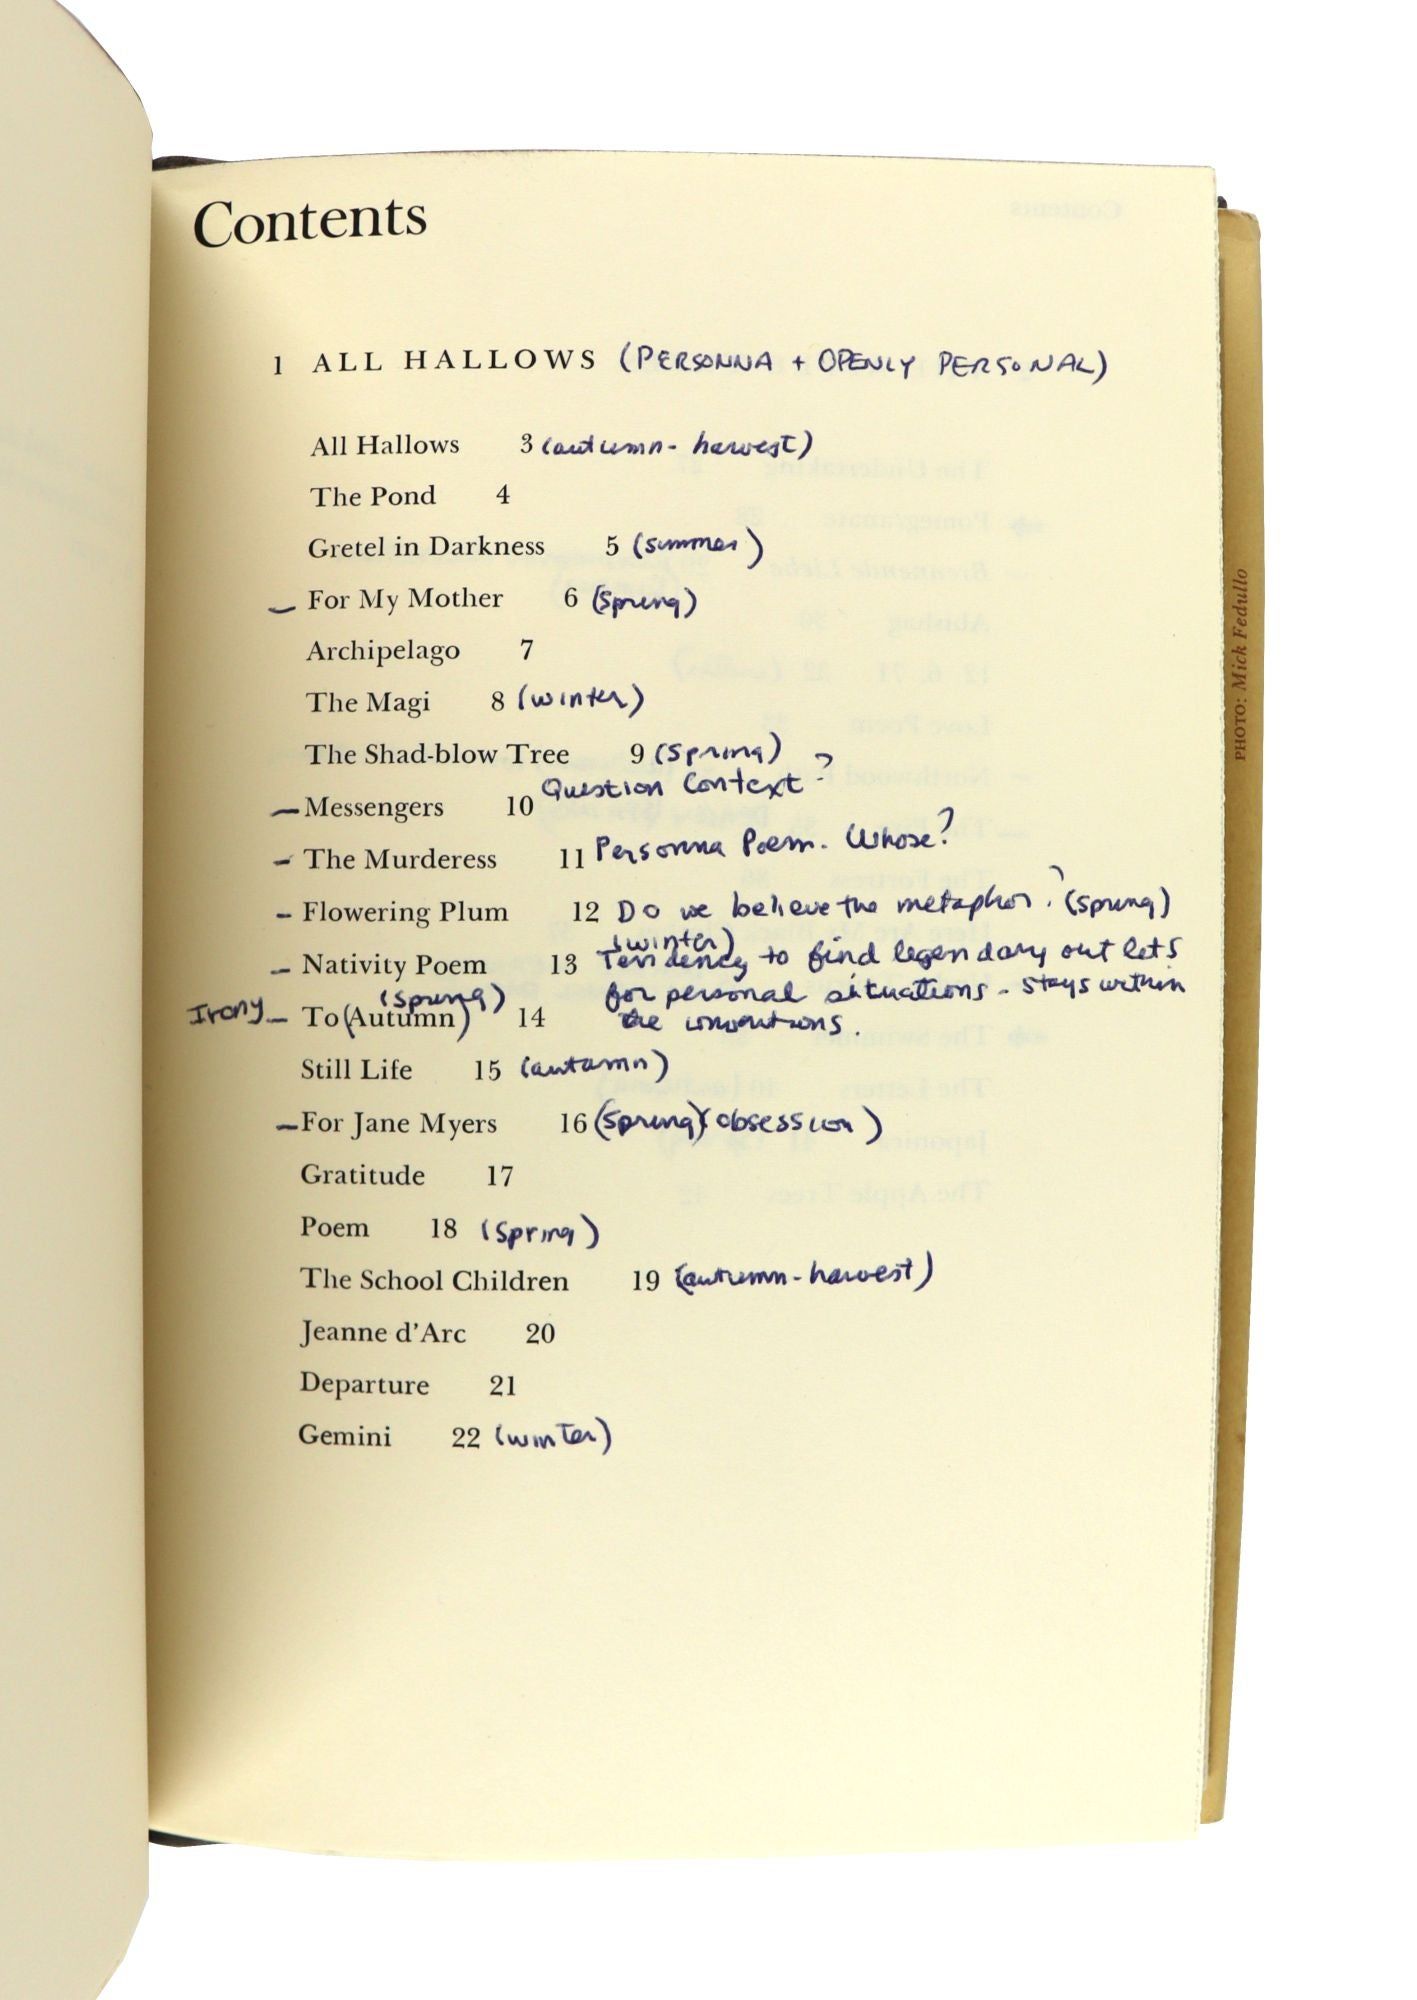 Contents
1 ALL HALLOWS (PERSONNA + OPENLY PERSONAL)
All Hallows 3 (autumn- harvest)
The Pond 4
Gretel in Darkness 5 (summer)
– For My Mother 6 (Spring)
Archipelago 7
The Magi 8 (winter)
The Shad-blow Tree 9 (Spring)
Question Context?
– Messengers 10
– The Murderess 11 Personna Poem. Whose?
– Flowering Plum 12 Do we believe the metaphor? (spring)
(winter)
– Nativity Poem 13 Tendency to find legendary outlets
for personal situations - stays within
the conventions.
(spring)
Irony – To (Autumn) 14
Still Life 15 (autumn)
– For Jane Myers 16 (spring) (obsession)
Gratitude 17
Poem 18 (Spring)
The School Children 19 (autumn-harvest)
Jeanne d'Arc 20
Departure 21
Gemini 22 (winter)
PHOTO: Mick Fedullo